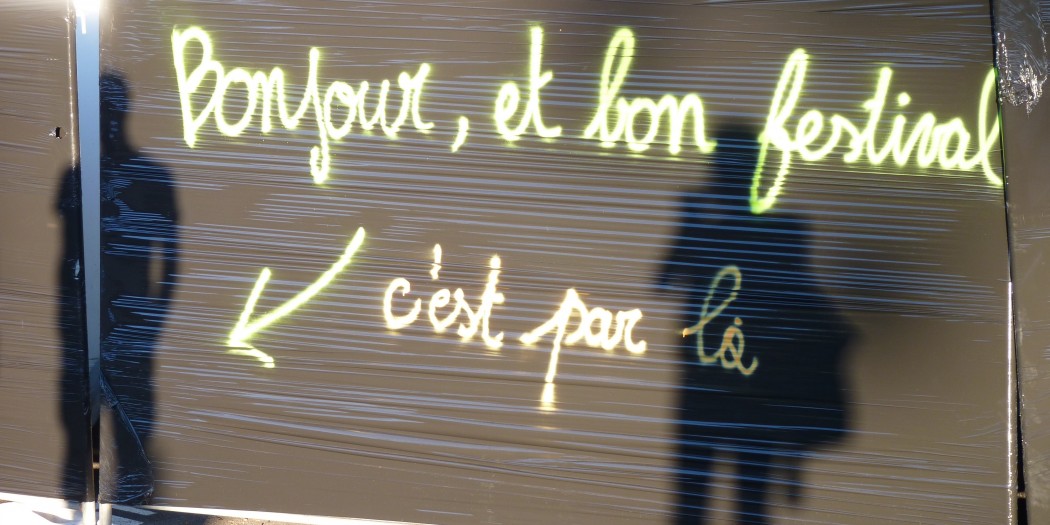 Bonjour, et bon festival
c'est par là